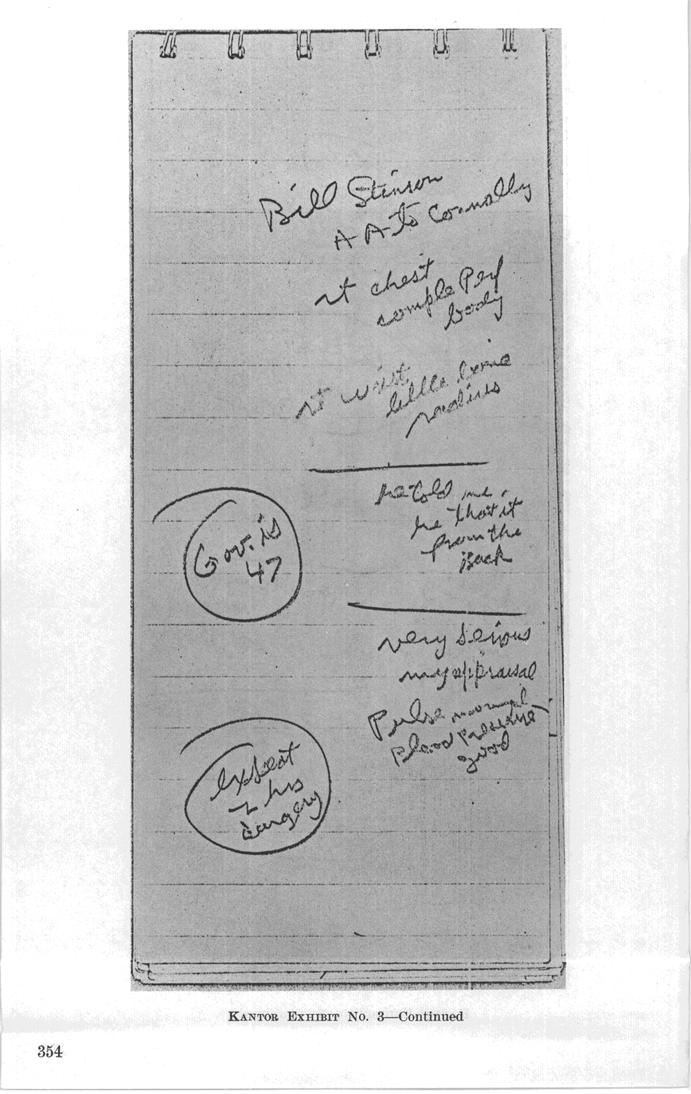 Bill Stinson
A A to Connally
rt chest
comple Perf
body
rt wrist
little bone
radius
he told me
he that it
from the
back
Gov. is
47
very serious
my appraisal
Pulse normal
Blood pressure
good
expect
2 hrs
surgery
KANTOR EXHIBIT NO. 3—Continued
354